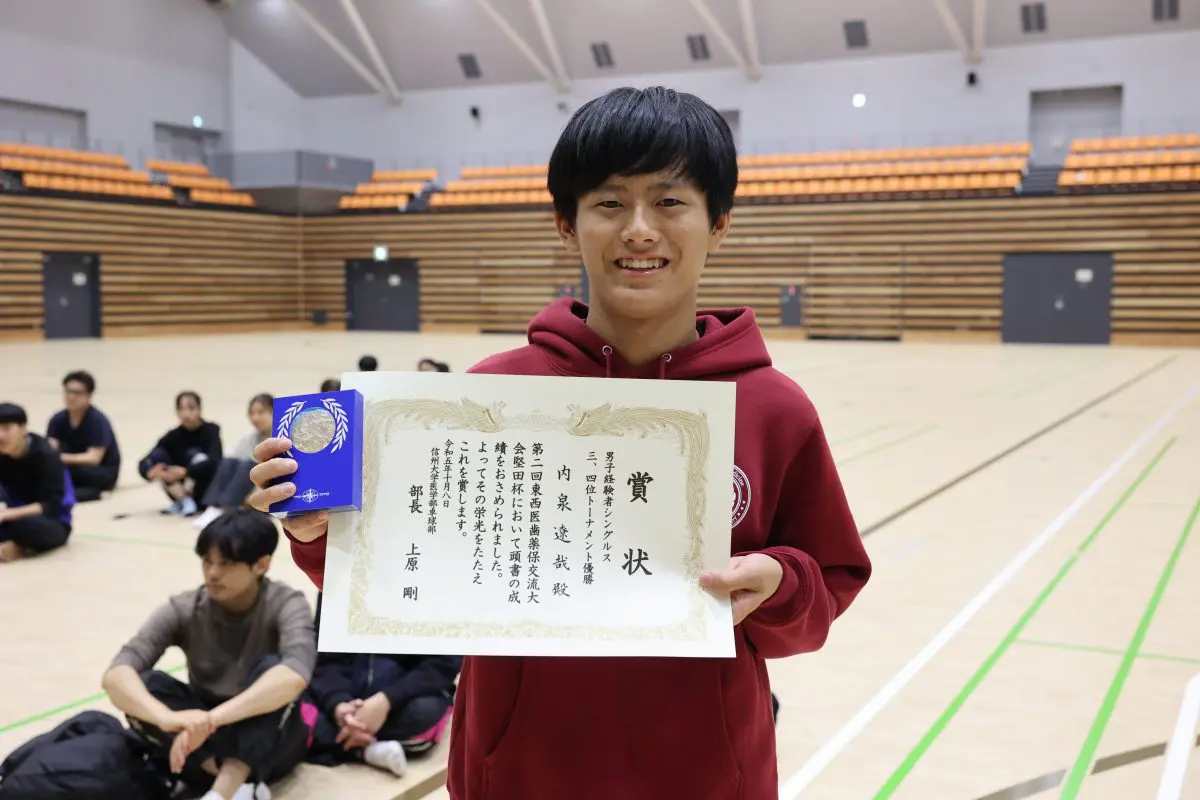 賞状
男子経験者シングルス
三、四位トーナメント優勝
内泉遼哉殿
第二回東西医歯薬保交流大
会堅田杯において頭書の成
績をおさめられました。
よってその栄光をたたえ
これを賞します。
令和五年十月八日
信州大学医学部卓球部
部長 上原剛